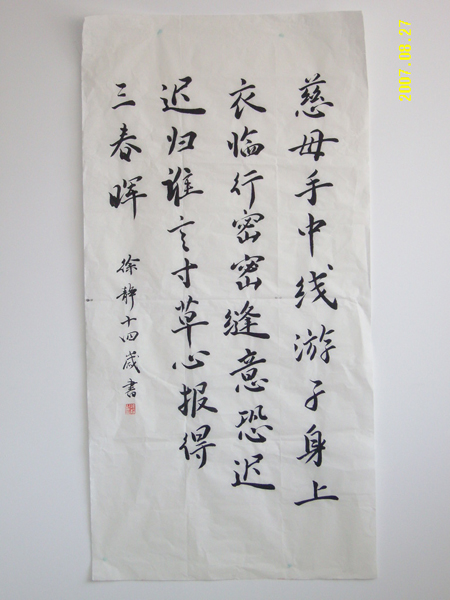 慈母手中线游子身上
衣临行密密缝意恐迟
迟归谁言寸草心报得
三春晖
徐静十四岁书
2007.08.27